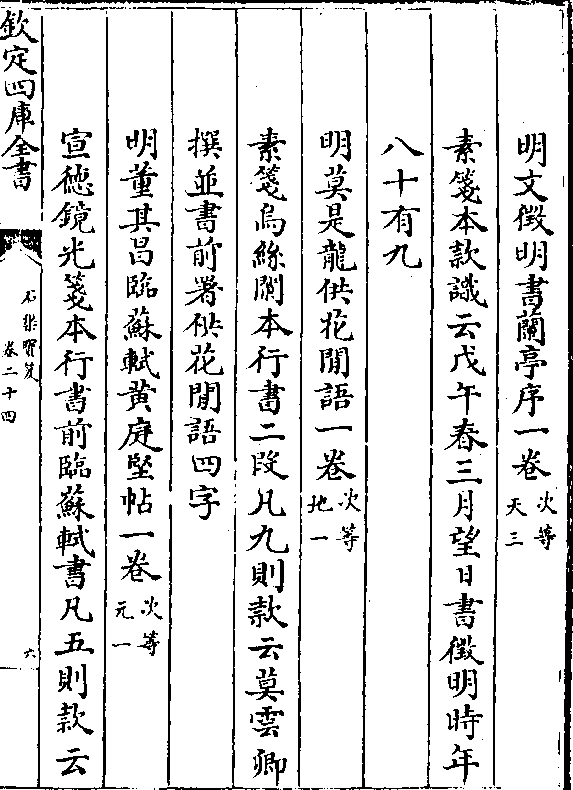 明文徵明書蘭亭序一卷次等天三
素箋本款識云戊午春三月望日書徵明時年
八十有九
明莫是龍供花閒語一卷次等地一
素箋烏絲闌本行書二段凡九則款云莫雲卿
撰並書前署供花閒語四字
明董其昌臨蘇軾黄庭堅帖一卷次等元一
宣德鏡光箋本行書前臨蘇軾書凡五則款云
欽定四庫全書
石渠寳笈
卷二十四
六